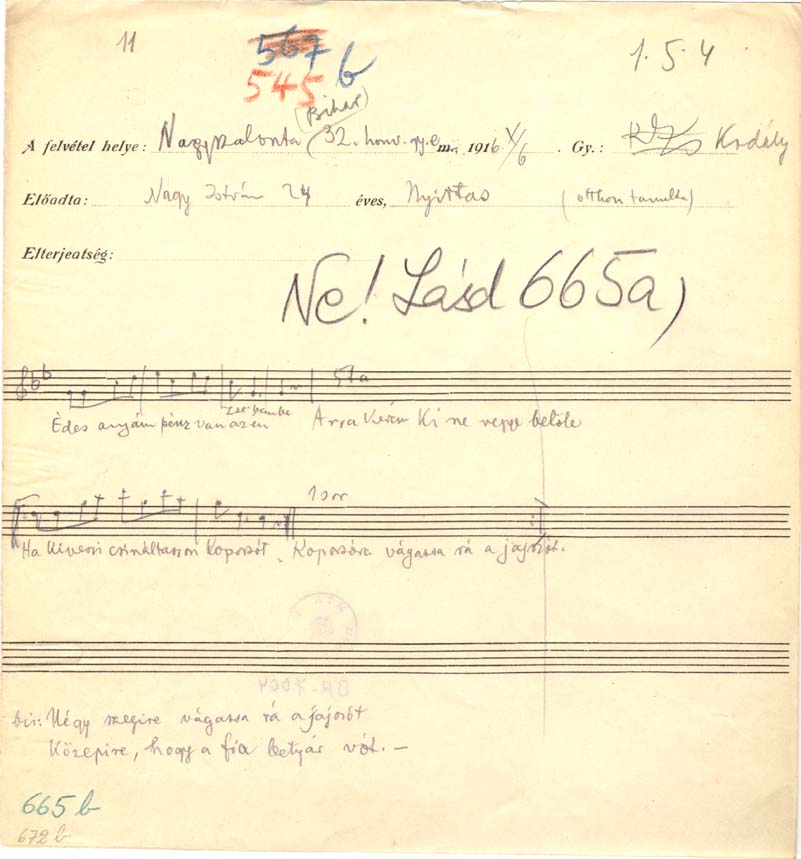 11
567 b
545
1.5.4
(Bihar)
A felvétel helye: Nagyszalonta (32. honv. gy. e m. 1916 X/6 . Gy.: Kodály
Előadta: Nagy István 24 éves, Nyitras (otthon tanulta)
Elterjeatség:
Ne! Lásd 665a)
57a
Édes anyám pénz van az én zsebembe Arra kérem ki ne vegye belőle
1 sor
Ha kiveszi csináltasson koporsót, Koporsóra vágassa rá a jajszót.
BR-7064
bis: Négy szegire vágassa rá a jajszót
Közepire, hogy a fia betyár vót. —
665 b
672 b